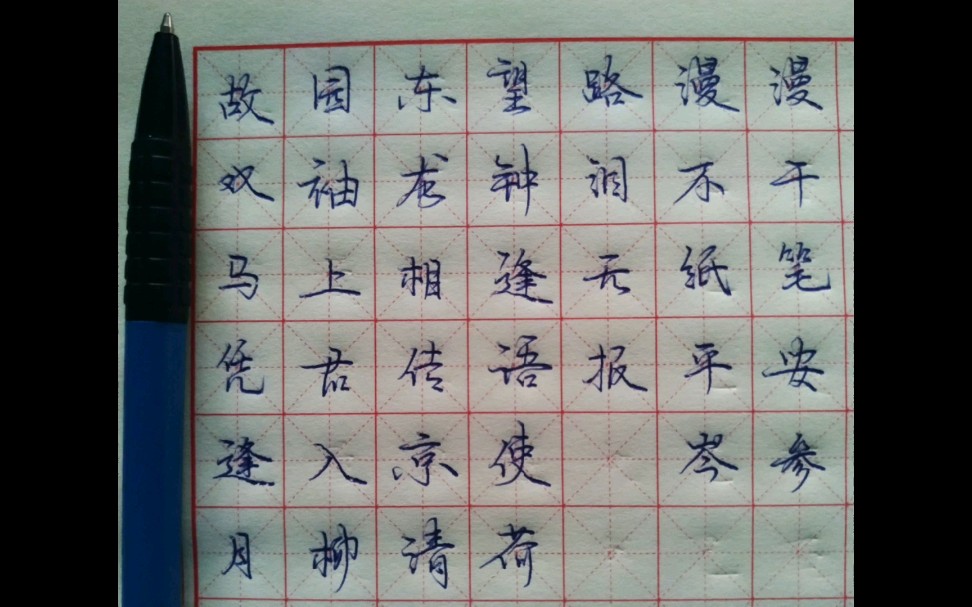 故园东望路漫漫
双袖龙钟泪不干
马上相逢无纸笔
凭君传语报平安
逢入京使 岑参
月柳清荷